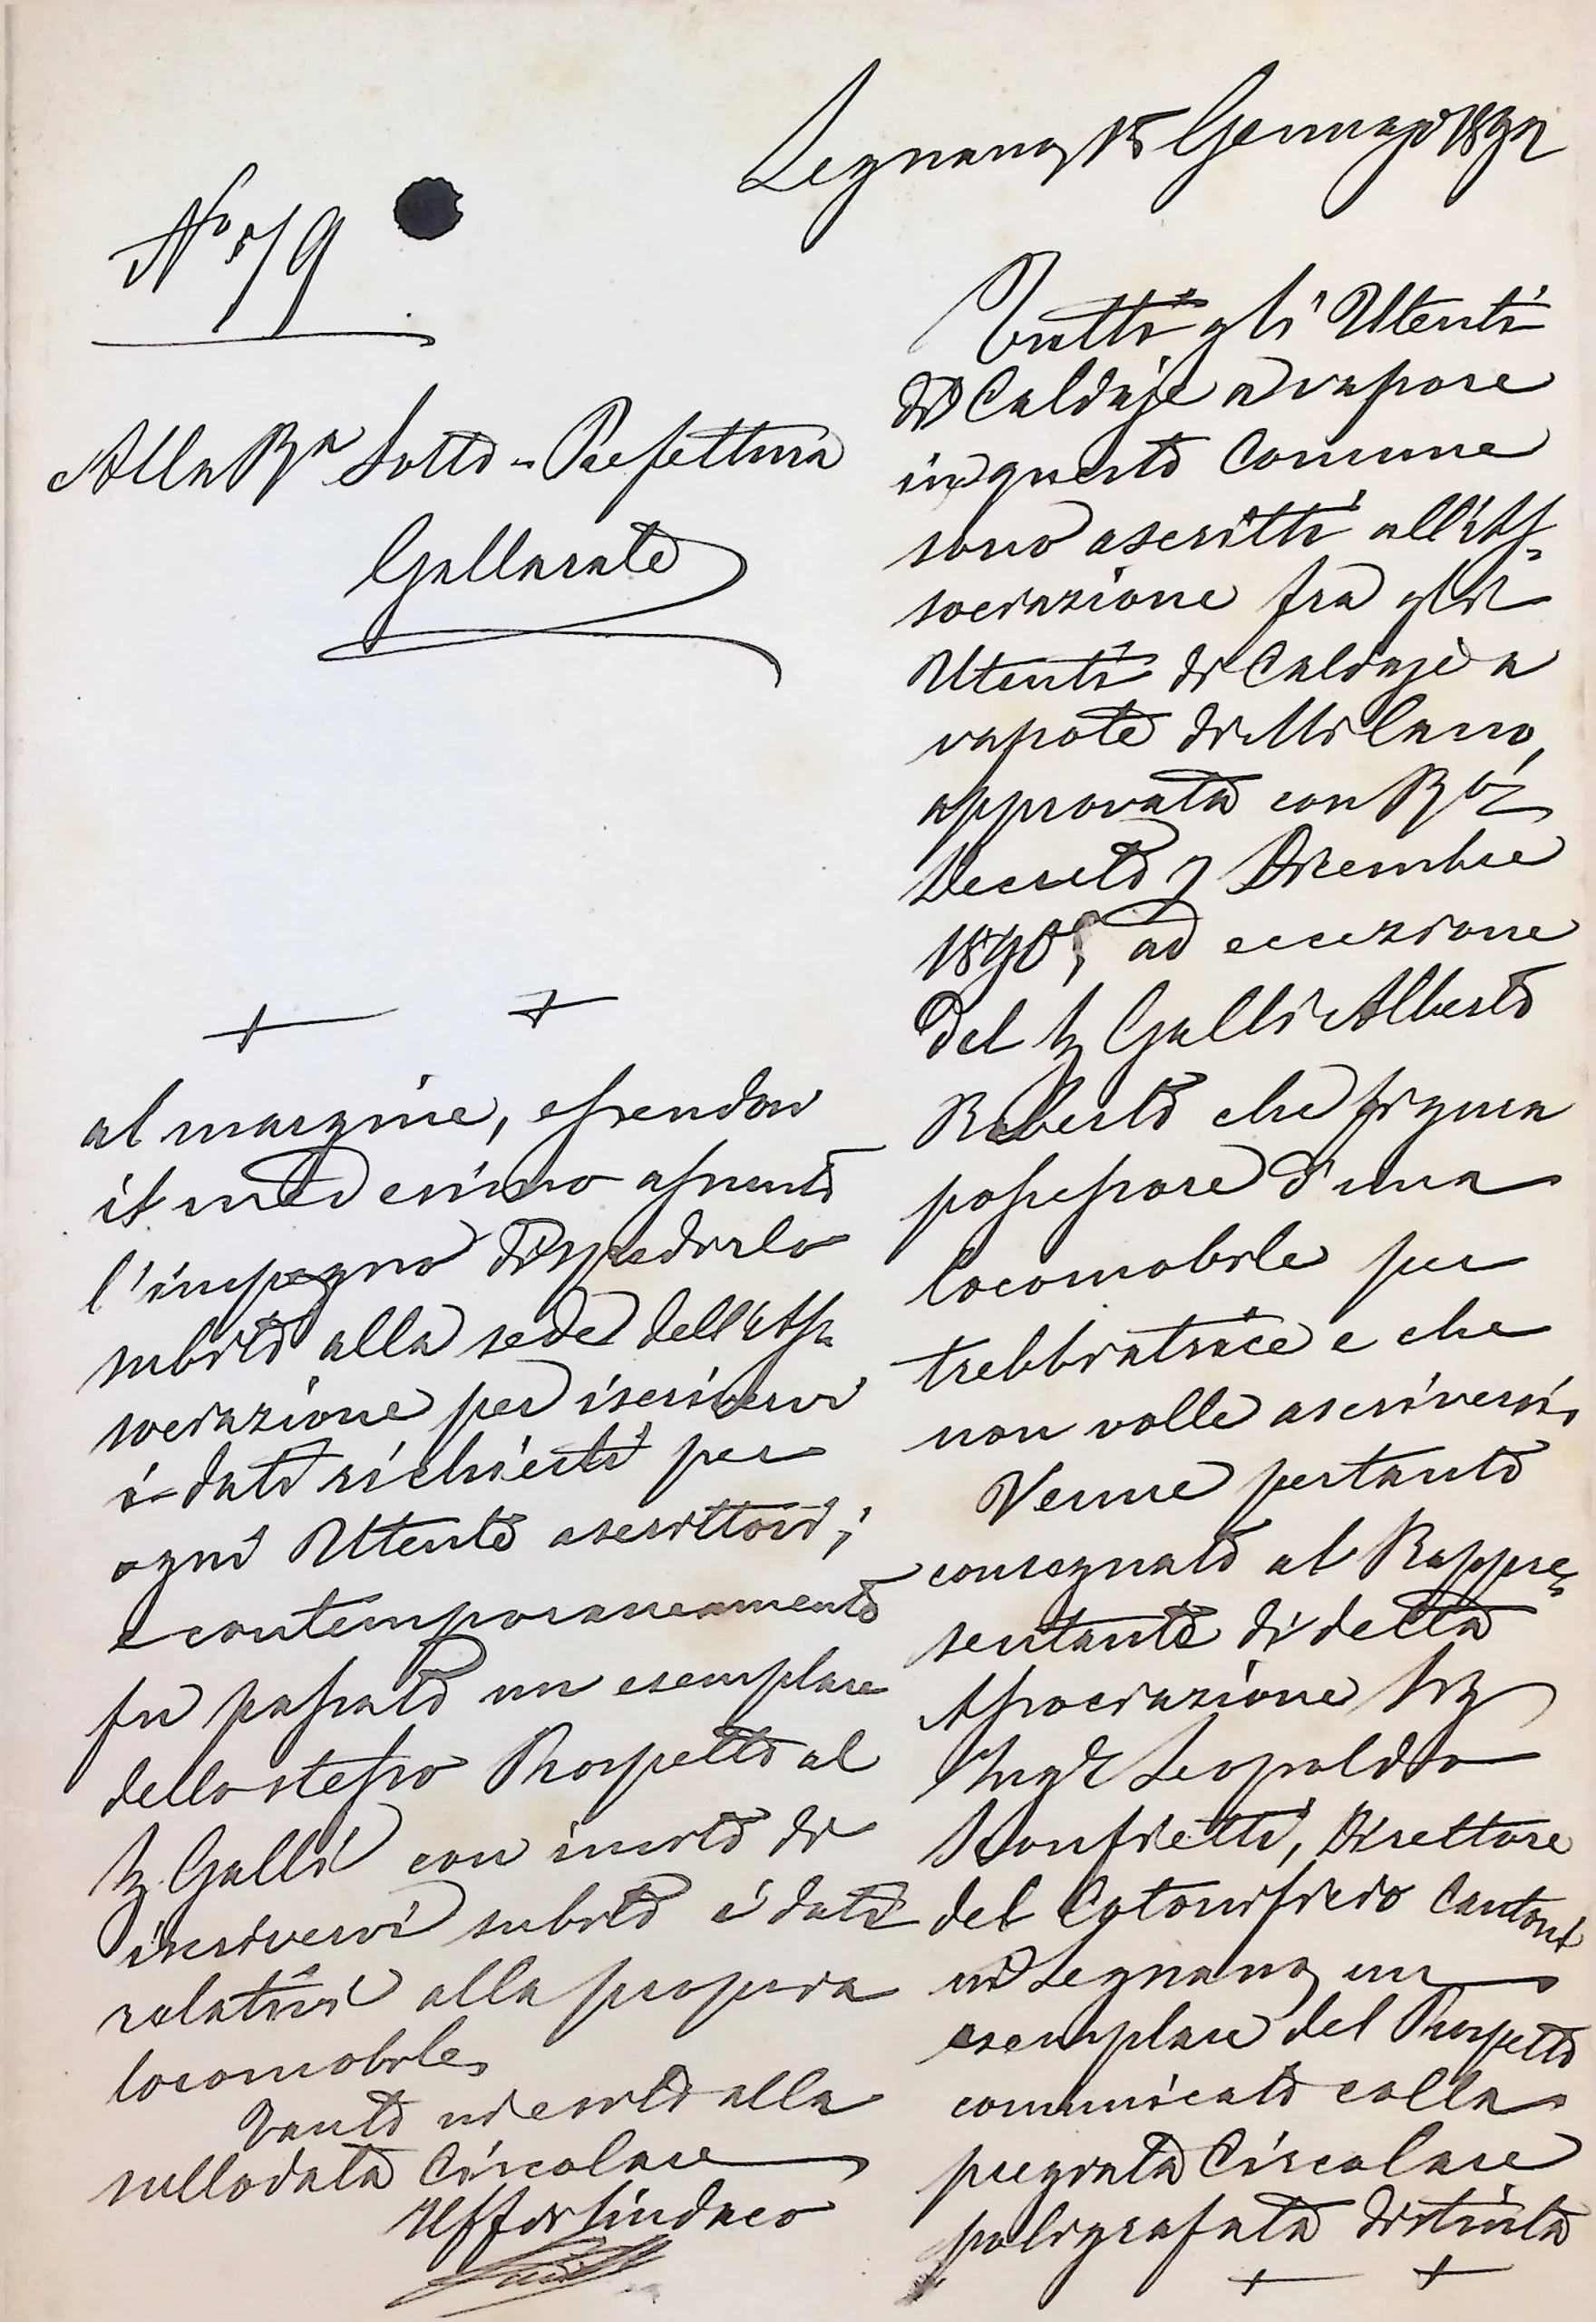 Legnano, 15 Gennajo 1892
Nº 519
Alla Rª Sotto-Prefettura
Gallarate
Tutti gli Utenti
di Caldaje a vapore
in questo Comune
sono ascritti all'As-
sociazione fra gli
Utenti di Caldaje a
vapore di Milano,
approvata con R
Decreto 7 Dicembre
1890, ad eccezione
del Sg Galli Alberto
Roberto che figura
possessore d'una
locomobile per
trebbiatrice e che
non volle ascriversi.
Venne pertanto
consegnato al Rappre-
sentante di detta
Associazione Sig
Ingr Leopoldo
Direttore
del Cotonificio Cantoni
in Legnano, un
esemplare del Prospetto
comunicato colla
pregiata Circolare
poligrafata distinta
+ +
+ +
al margine, essendosi
il medesimo assunto
l'impegno di spedirlo
subito alla sede dell'As-
sociazione per iscrivervi
i dati richiesti per
ogni Utente ascrittovi;
e contemporaneamente
fu passato un esemplare
dello stesso Prospetto al
Sg. Galli con invito di
inscrivervi subito i dati
relativi alla propria
locomobile.
Tanto in esito alla
sullodata Circolare
Uff di Sindaco